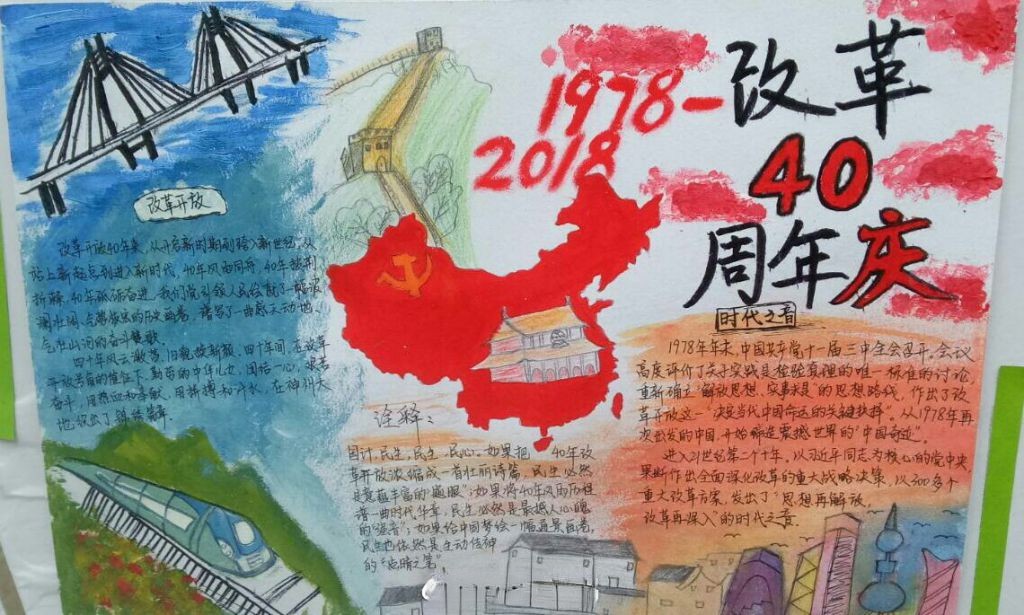 1978-
2018
改革
40
周年庆
改革开放
改革开放40年来,从开启新时期到跨入新世纪,从
站上新起点到进入新时代,40年风雨同舟,40年披荆
斩棘,40年砥砺奋进,我们党引领人民绘就了一幅波
澜壮阔、气势恢宏的历史画卷,谱写了一曲感天动地、
气壮山河的奋斗赞歌。
四十年风云激荡,旧貌换新颜,四十年间,在改革
开放
勤劳的中华儿女,团结一心,艰苦
奋斗,用热血和
用拼搏和汗水,在神州大
地
注释:
国计民生,民生,民心。如果把 40年改
革开放浓缩成一首壮丽诗篇,民生必然
是意蕴丰富的"题眼";如果将40年风雨历程
谱一曲时代华章,民生必然是最撼人心魄
的"强音";如果给中国梦绘一幅通景画卷,
民生也依然是生动传神
的"点睛之笔"。
时代之音
1978年年末,中国共产党十一届三中全会召开。会议
高度评价了关于实践是检验真理的唯一标准的讨论,
重新确立"解放思想、实事求是"的思想路线,作出了改
革开放这一"决定当代中国命运的关键抉择"。从1978年再
次出发的中国,开始缔造震撼世界的"中国奇迹"。
进入21世纪第二个十年,以习近平同志为核心的党中央
果断作出全面深化改革的重大战略决策,以300多个
重大改革方案,发出了"思想再解放,
改革再深入"的时代之音